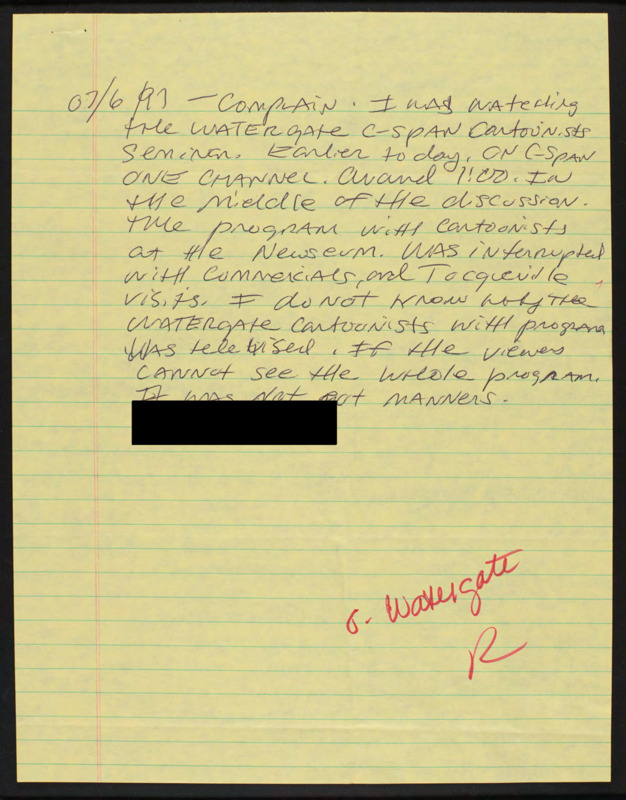 07/6/97 — Complain. I was watching
the WATERGATE C-SPAN Cartoonists
Seminar. Earlier today, ON C-SPAN
ONE CHANNEL. Around 1:00. In
the middle of the discussion.
The program with cartoonists
at the Newseum. Was interrupted
with Commercials, and Tocqueville
visits. I do not know why the
WATERGATE Cartoonists with program
Was televised. If the viewers
CANNOT see the whole program.
It was not MANNERS.
σ. Watergate
R